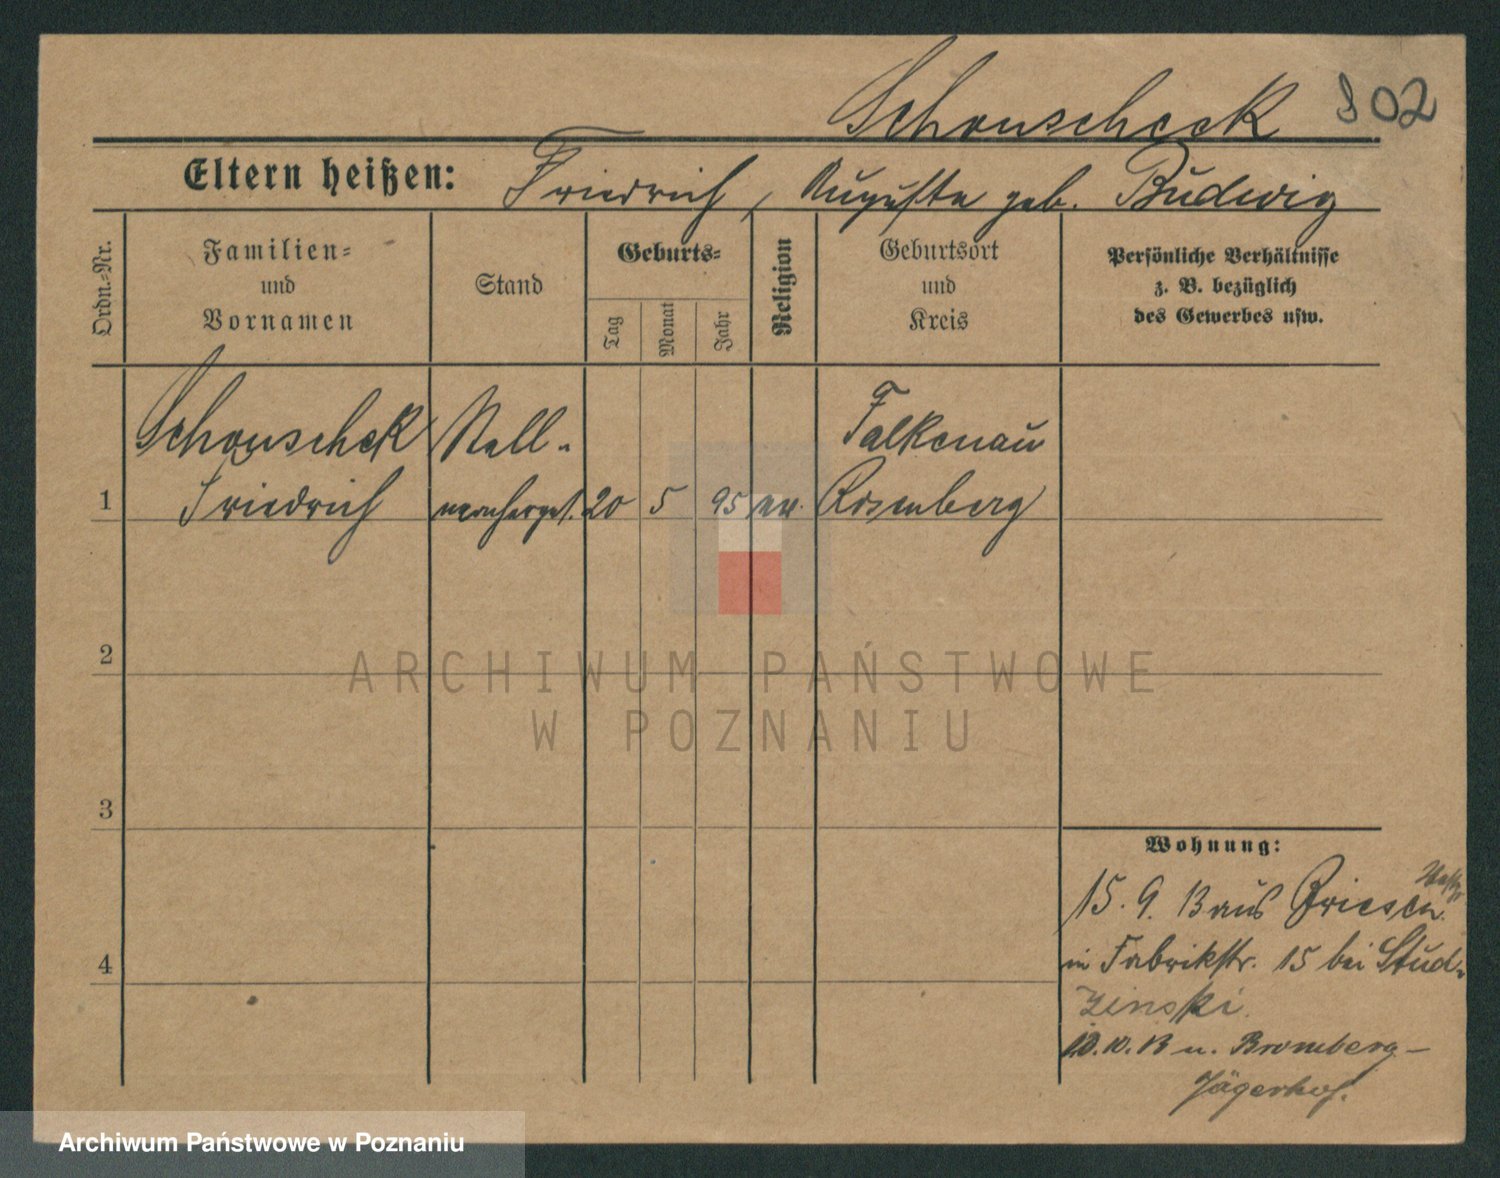 Schouscheck 802
Eltern heißen: Friedrich, Auguste geb. Budwig
Ordn.-Nr.
Familien- und Vornamen
Stand
Geburts-
Tag
Monat
Jahr
Religion
Geburtsort und Kreis
Persönliche Verhältnisse
z. B. bezüglich
des Gewerbes usw.
Schouschek Stell- Falkenau
1 Friedrich machergs. 20 5 95 ev. Rosenberg
2
ARCHIWUM PAŃSTWOWE
W POZNANIU
3
Wohnung:
15. 9. 13 aus Briesen
in Fabrikstr. 15 bei Stud-
zinski.
10. 13 n. Bromberg-
Jägerhof.
4
Archiwum Państwowe w Poznaniu